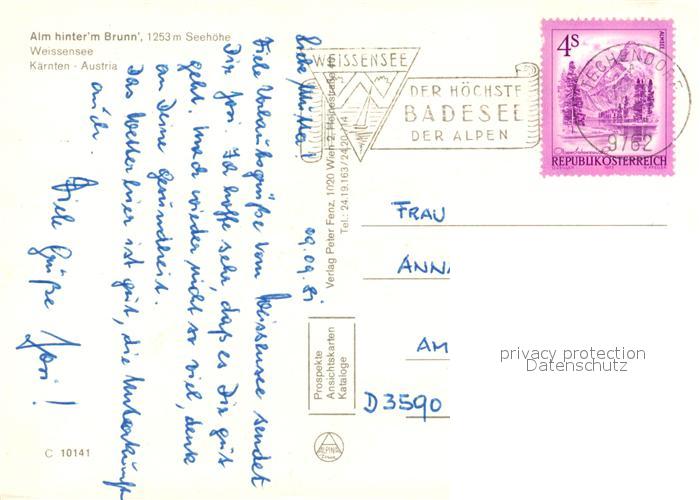 Alm hinter'm Brunn', 1253 m Seehöhe
Weissensee
Kärnten - Austria
Liebe Mutter!
29.09.81
Viele Urlaubsgrüße vom Weissensee sendet
Dir Jori. Ich hoffe sehr, daß es Dir gut
geht. Mach wieder nicht so viel, denk
an Deine Gesundheit.
Das Wetter hier ist gut, die Unterkunft
auch.
Viele Grüße
C 10141
Verlag Peter Fenz, 1020 Wien 2, Heinestraße
Tel.: 24.19.163/24.20.114
Prospekte
Ansichtskarten
Kataloge
ALPINA
WEISSENSEE
DER HÖCHSTE
BADESEE
DER ALPEN
TECHENDORF
9762
4S
ALMSEE
REPUBLIK ÖSTERREICH
FRAU
ANN
AM
D 3590
privacy protection
Datenschutz